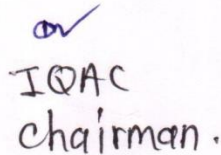 IQAC
chairman.